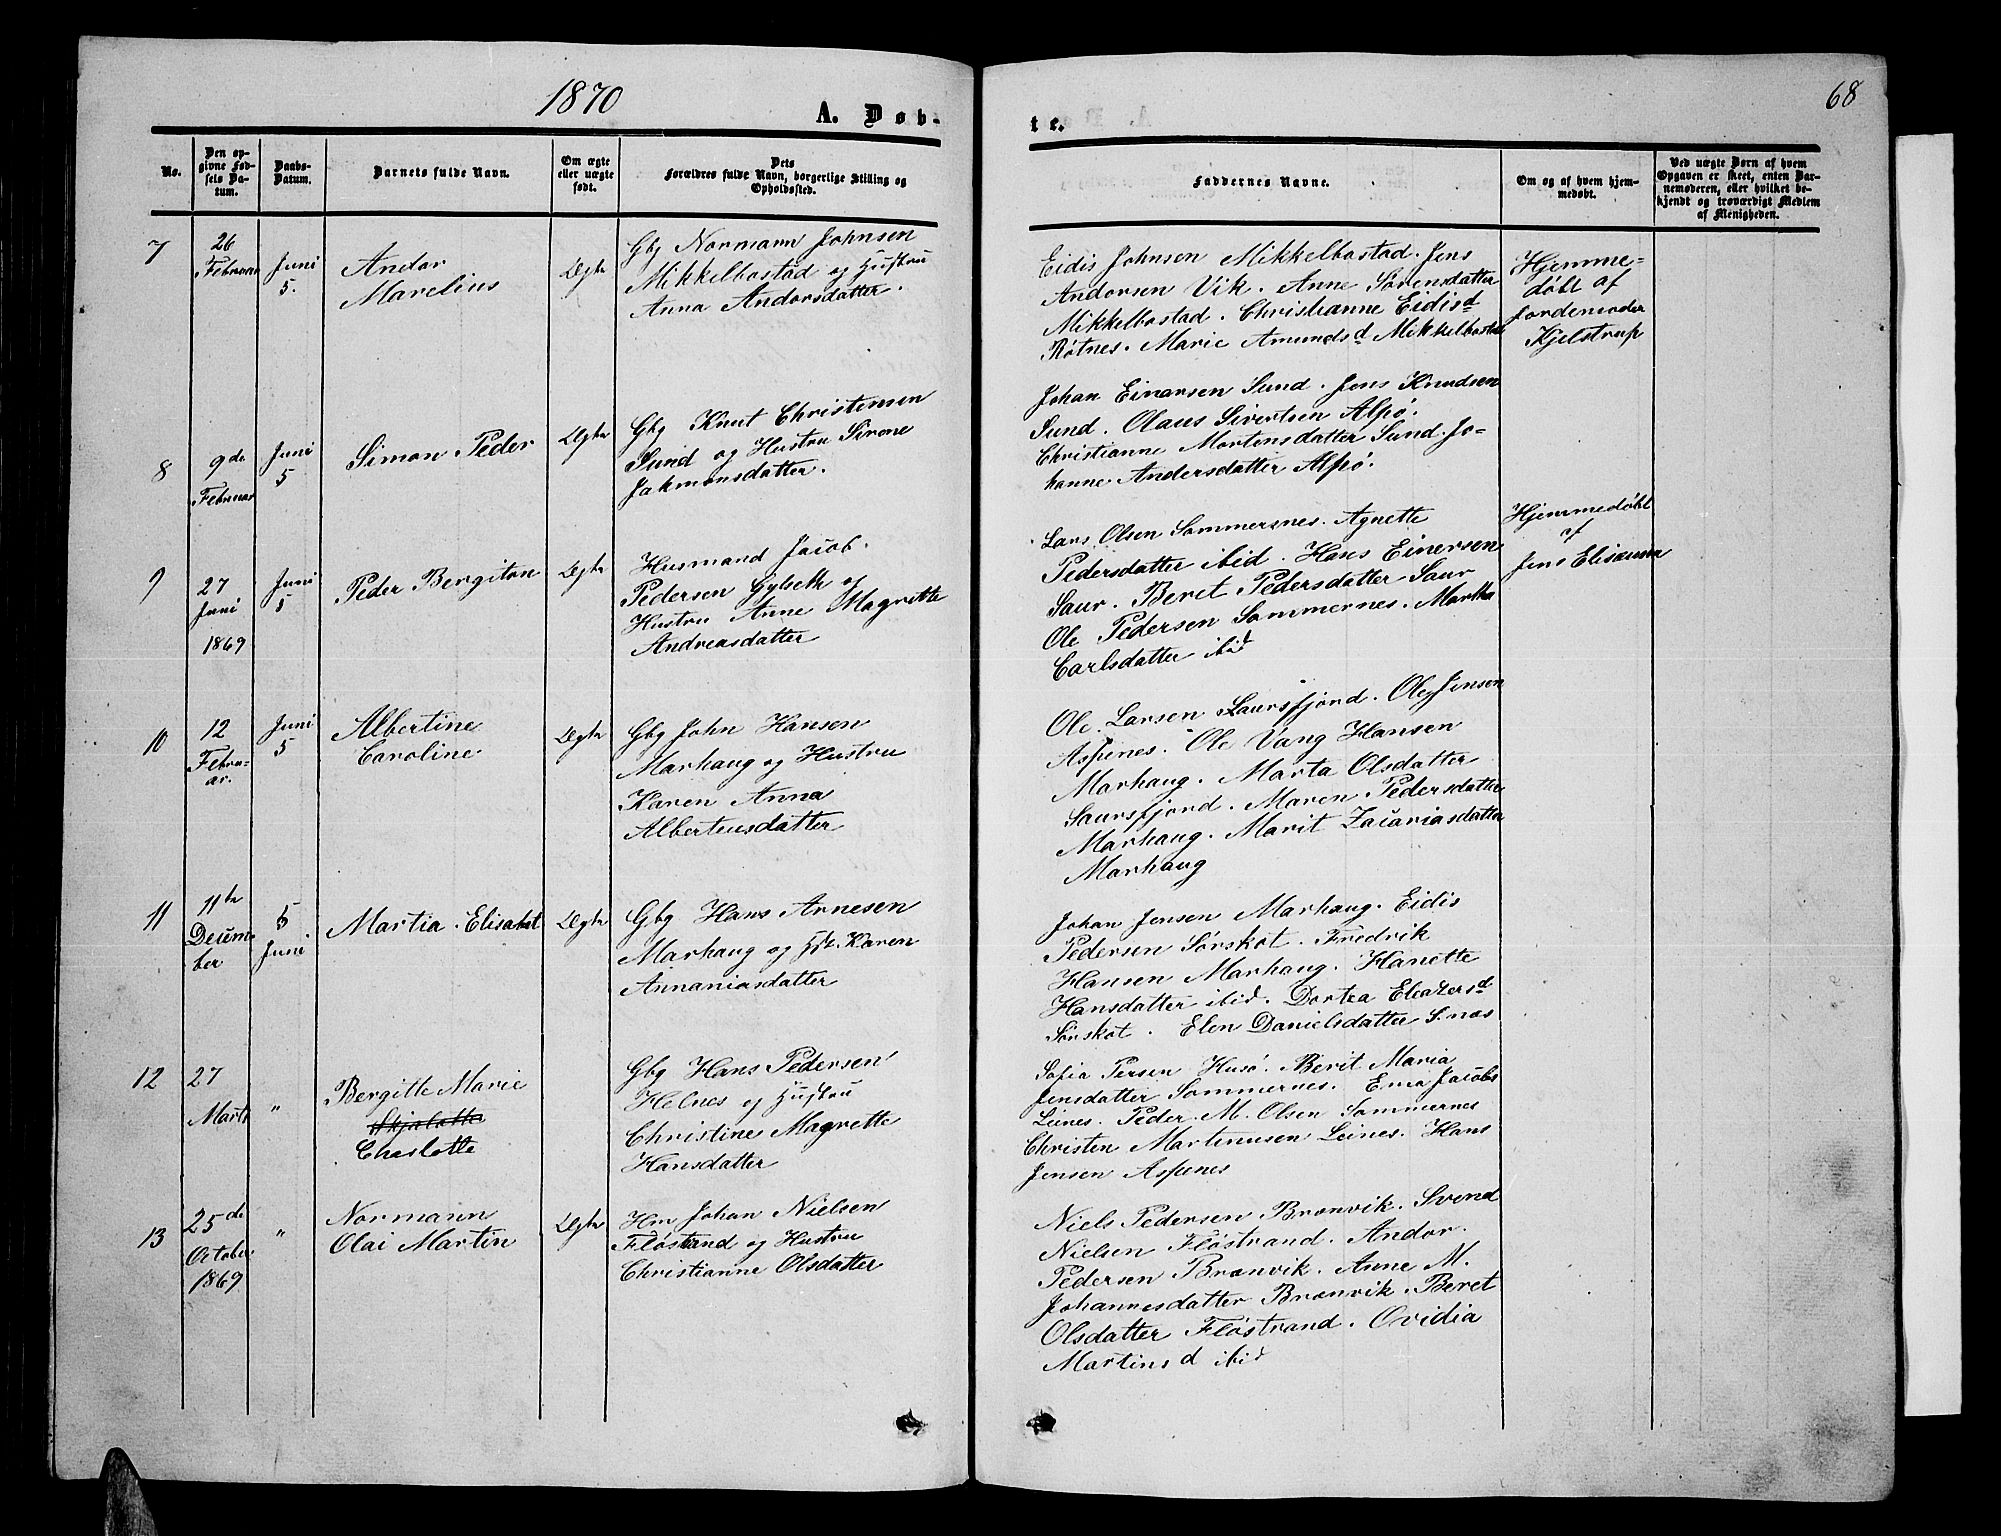 1870
A. Døb-
te.
68
No.
Den op-
givne Fød-
sels Da-
tum.
Daabs-
Datum.
Barnets fulde Navn.
Om ægte
eller uægte
født.
Dets
Forældres fulde Navn, borgerlige Stilling og
Opholdssted.
Faddernes Navne.
Om og af hvem hjem-
medøbt.
Ved uægte Børn af hvem
Opgaven er skeet, enten Bar-
nemoderen, eller hvilket be-
kjendt og troværdigt Medlem
af Menigheden.
7
26
Februar
Juni
5.
Andor
Marelius
Ægte
Gbg Normann Johnsen
Mikkelbostad og Hustru
Anna Andorsdatter.
Eidis Johnsen Mikkelbostad. Jens
Andorsen Vik. Anne Sørensdatter
Mikkelbostad. Christianne Eidisd
Røtnes. Marie Amundsd Mikkelbostad
Hjemme=
døbt af
Jordemoder
Kjelstrup
8
9de
Februar
Juni
5
Simon Peder
Ægte
Gbg Knut Christensen
Sund og Hustru Sirene
Jakmonsdatter.
Johan Einarsen Sund. Jens Knudsen
Sund. Olaus Sivertsen Alpø.
Christianne Mortensdatter Sund. Jo-
hanne Andersdatter Alpø.
9
27
Juni
1869
Juni
5
Peder Bergiton
Ægte
Husmand Jacob
Pedersen Gylseth og
Hustru Anne Magrette
Andreasdatter
Lars Olsen Sommersnes. Agnette
Pedersdatter ibid. Hans Einersen
Saur. Beret Pedersdatter Saur
Ole Pedersen Sommernes. Martha
Carlsdatter ibid
Hjemmedøbt
af
Jens Eliseusen
10
12
Febru-
ar.
Juni
5
Albertine
Caroline
Ægte
Gbg John Hansen
Marhaug og Hustru
Karen Anna
Albertensdatter
Ole Larsen Saursfjord. Ole Jensen
Aspenes. Ole Vang Hansen
Marhaug. Marta Olsdatter
Saursfjord. Maren Pedersdatter
Marhaug. Marit Zacariasdatter
Marhaug
11
11te
Decem-
ber
5
Juni
Martia Elisabet
Ægte
Gbg Hans Arnesen
Marhaug og H. Karen
Annaniasdatter
Johan Jensen Marhaug. Eidis
Pedersen Sørskot. Fredrik
Hansen Marhaug. Hanette
Hansdatter ibid. Dortea Eleazersd
Sørskot. Elen Danielsdatter S.næs
12
27
Marts
"
Bergitte Marie
Skjalotte
Charlotte
Gbg Hans Pedersen
Helnes og Hustru
Christine Magrette
Hansdatter
Sofia Persen Husø. Berit Maria
Jensdatter Sommernes. Ema Jacobs
Leines. Peder M. Olsen Sommernes
Christen Martenusen Leines. Hans
Jensen Aspenes
13
25de
October
1869
"
Normann
Olai Martin
Ægte
Hm Johan Nielsen
Fløstrand og Hustru
Christianne Olsdatter
Niels Pedersen Brønvik. Svend
Nielsen Fløstrand. Andor
Pedersen Brønvik. Anne M.
Johannesdatter Brønvik. Beret
Olsdatter Fløstrand. Ovidia
Martinsd ibid